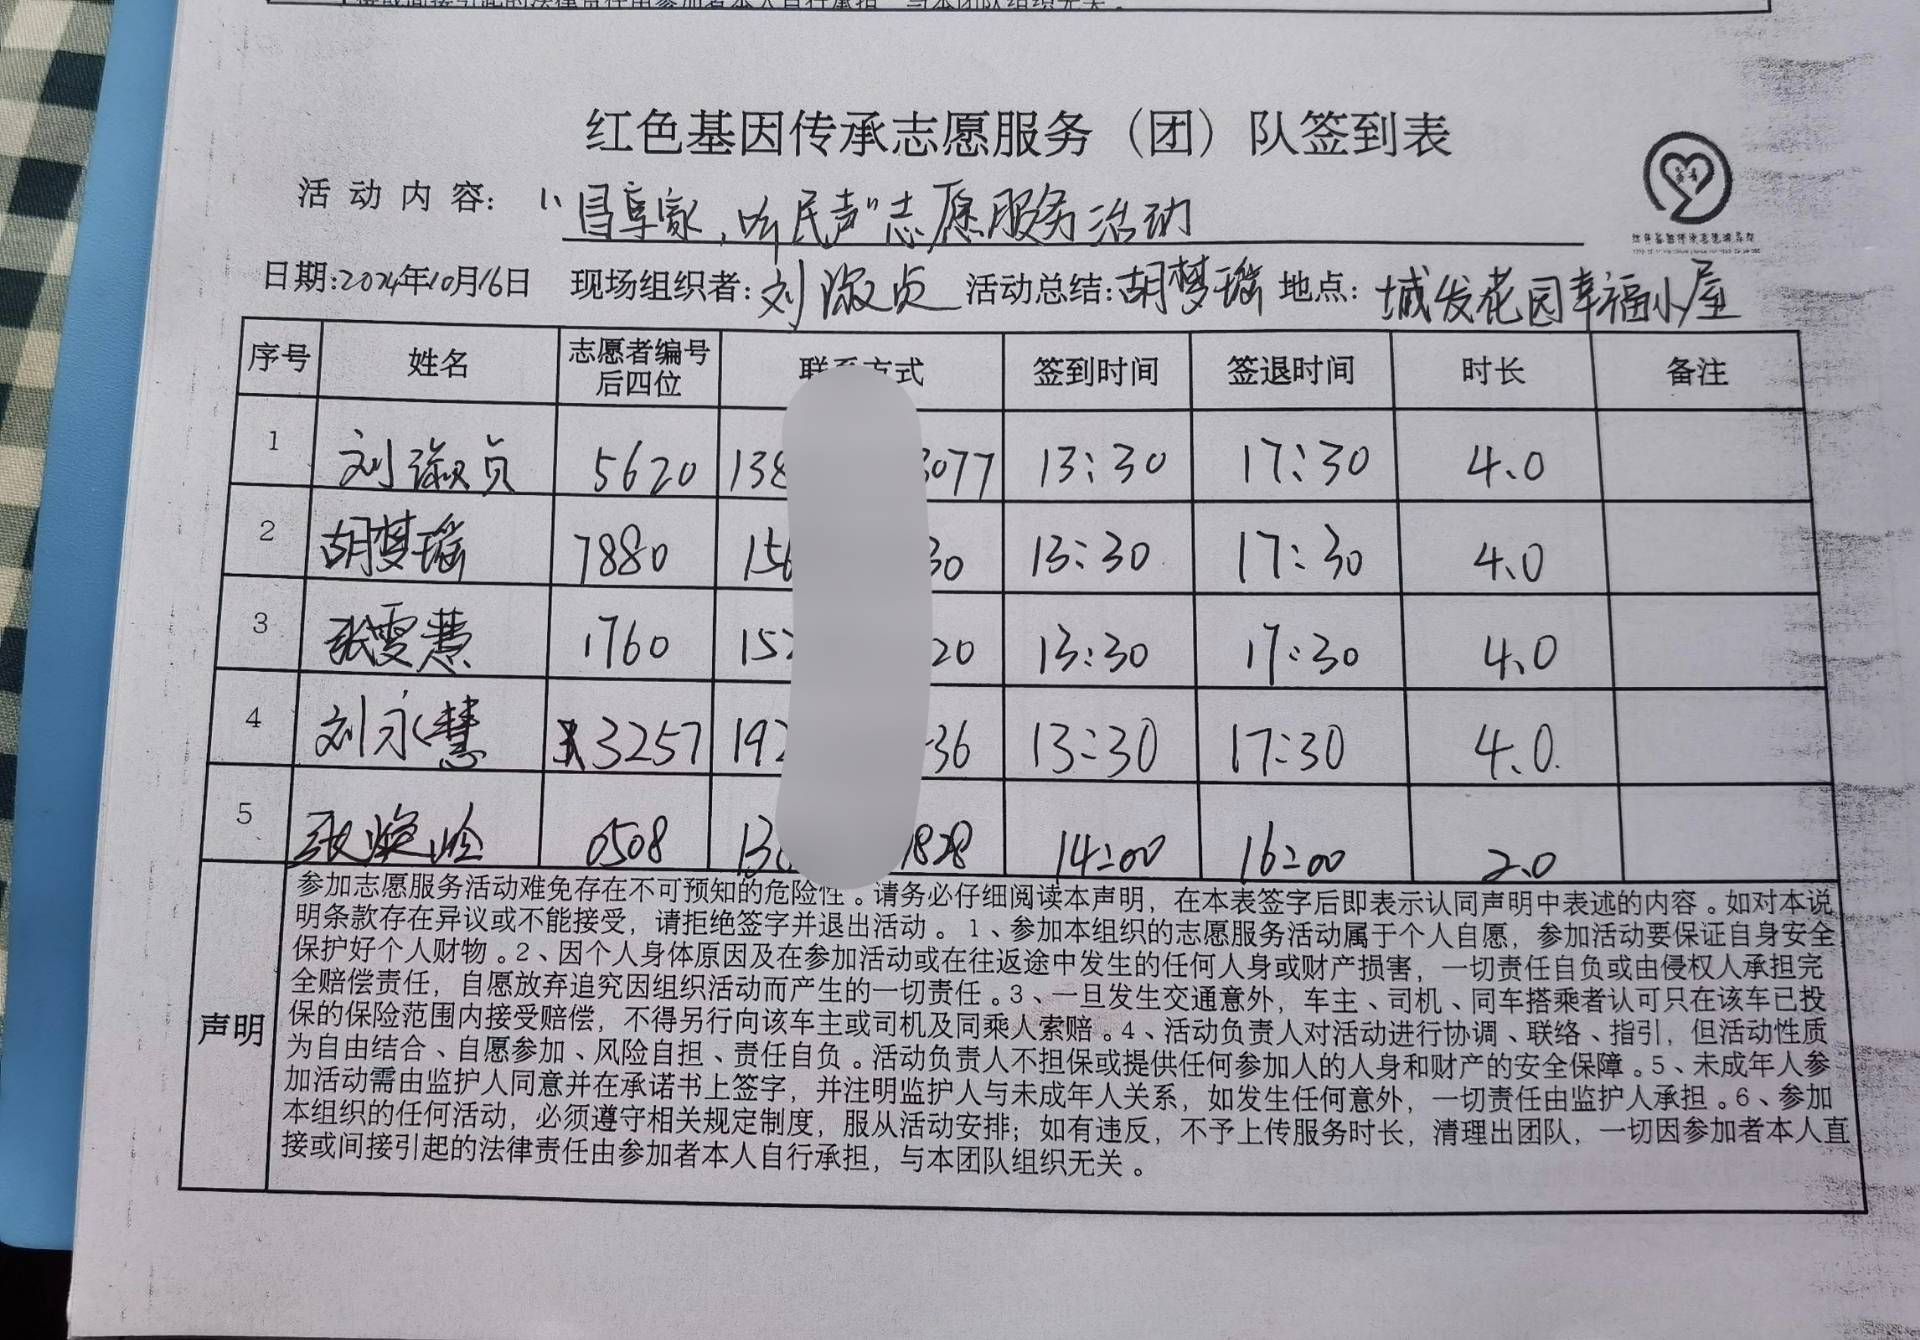 接或间接引起的法律责任由参加者本人自行承担，与本团队组织无关。
红色基因传承志愿服务（团）队签到表
活动内容：“昌享家，听民声”志愿服务活动
日期:2024年10月16日 现场组织者:刘淑贞 活动总结:胡梦瑶 地点: 城发花园幸福小屋
序号 姓名 志愿者编号后四位 联系方式 签到时间 签退时间 时长 备注
1 刘淑贞 5620 138 3077 13:30 17:30 4.0
2 胡梦瑶 7880 156 30 13:30 17:30 4.0
3 张雯慧 1760 152 20 13:30 17:30 4.0
4 刘永慧 3257 192 36 13:30 17:30 4.0
5 张焕 0508 13 1828 14:00 16:00 2.0
声明
参加志愿服务活动难免存在不可预知的危险性。请务必仔细阅读本声明，在本表签字后即表示认同声明中表述的内容。如对本说
明条款存在异议或不能接受，请拒绝签字并退出活动。1、参加本组织的志愿服务活动属于个人自愿，参加活动要保证自身安全
保护好个人财物。2、因个人身体原因及在参加活动或在往返途中发生的任何人身或财产损害，一切责任自负或由侵权人承担完
全赔偿责任，自愿放弃追究因组织活动而产生的一切责任。3、一旦发生交通意外，车主、司机、同车搭乘者认可只在该车已投
保的保险范围内接受赔偿，不得另行向该车主或司机及同乘人索赔。4、活动负责人对活动进行协调、联络、指引，但活动性质
为自由结合、自愿参加、风险自担、责任自负。活动负责人不担保或提供任何参加人的人身和财产的安全保障。5、未成年人参
加活动需由监护人同意并在承诺书上签字，并注明监护人与未成年人关系，如发生任何意外，一切责任由监护人承担。6、参加
本组织的任何活动，必须遵守相关规定制度，服从活动安排；如有违反，不予上传服务时长，清理出团队，一切因参加者本人直
接或间接引起的法律责任由参加者本人自行承担，与本团队组织无关。